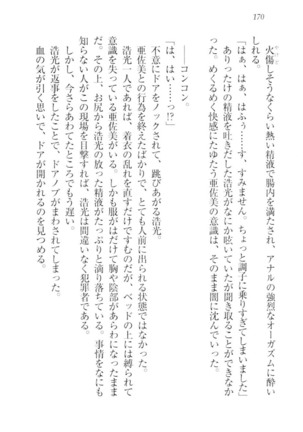 170
火傷しそうなくらい熱い精液で腸内を満たされ、アナルの強烈なオーガズムに酔い
しれる。
「はぁ、はぁ、はふぅ……す、すみません。ちょっと調子に乗りすぎてしまいました」
ありったけの精液を吐きだした浩光がなにか呟いていたが聞き取ることができなか
った。めくるめく快感にたゆたう亜佐美の意識は、そのまま闇に沈んでいった。
――コンコン。
「は、はい……っ!?」
不意にドアをノックされて、跳びあがる浩光。
亜佐美との行為を終えたばかりで、とても人前に出られる状態ではなかった。
浩光一人であれば、着衣の乱れを直すだけですむのだが、ベッドの上には縛られて
意識を失っている亜佐美がいる。しかも服がはだけて胸や陰部があらわになったまま
だ。その上、お尻から浩光の放った精液がたっぷりと滴り落ちている。事情をなにも
知らない人がこの現場を目撃すれば、浩光は間違いなく犯罪者である。
しかし、今さらあわてたところでもう遅い。
浩光が返事をしたことで、ドアノブがまわされてしまった。
血の気が引く思いで、ドアが開かれるのを見つめる。